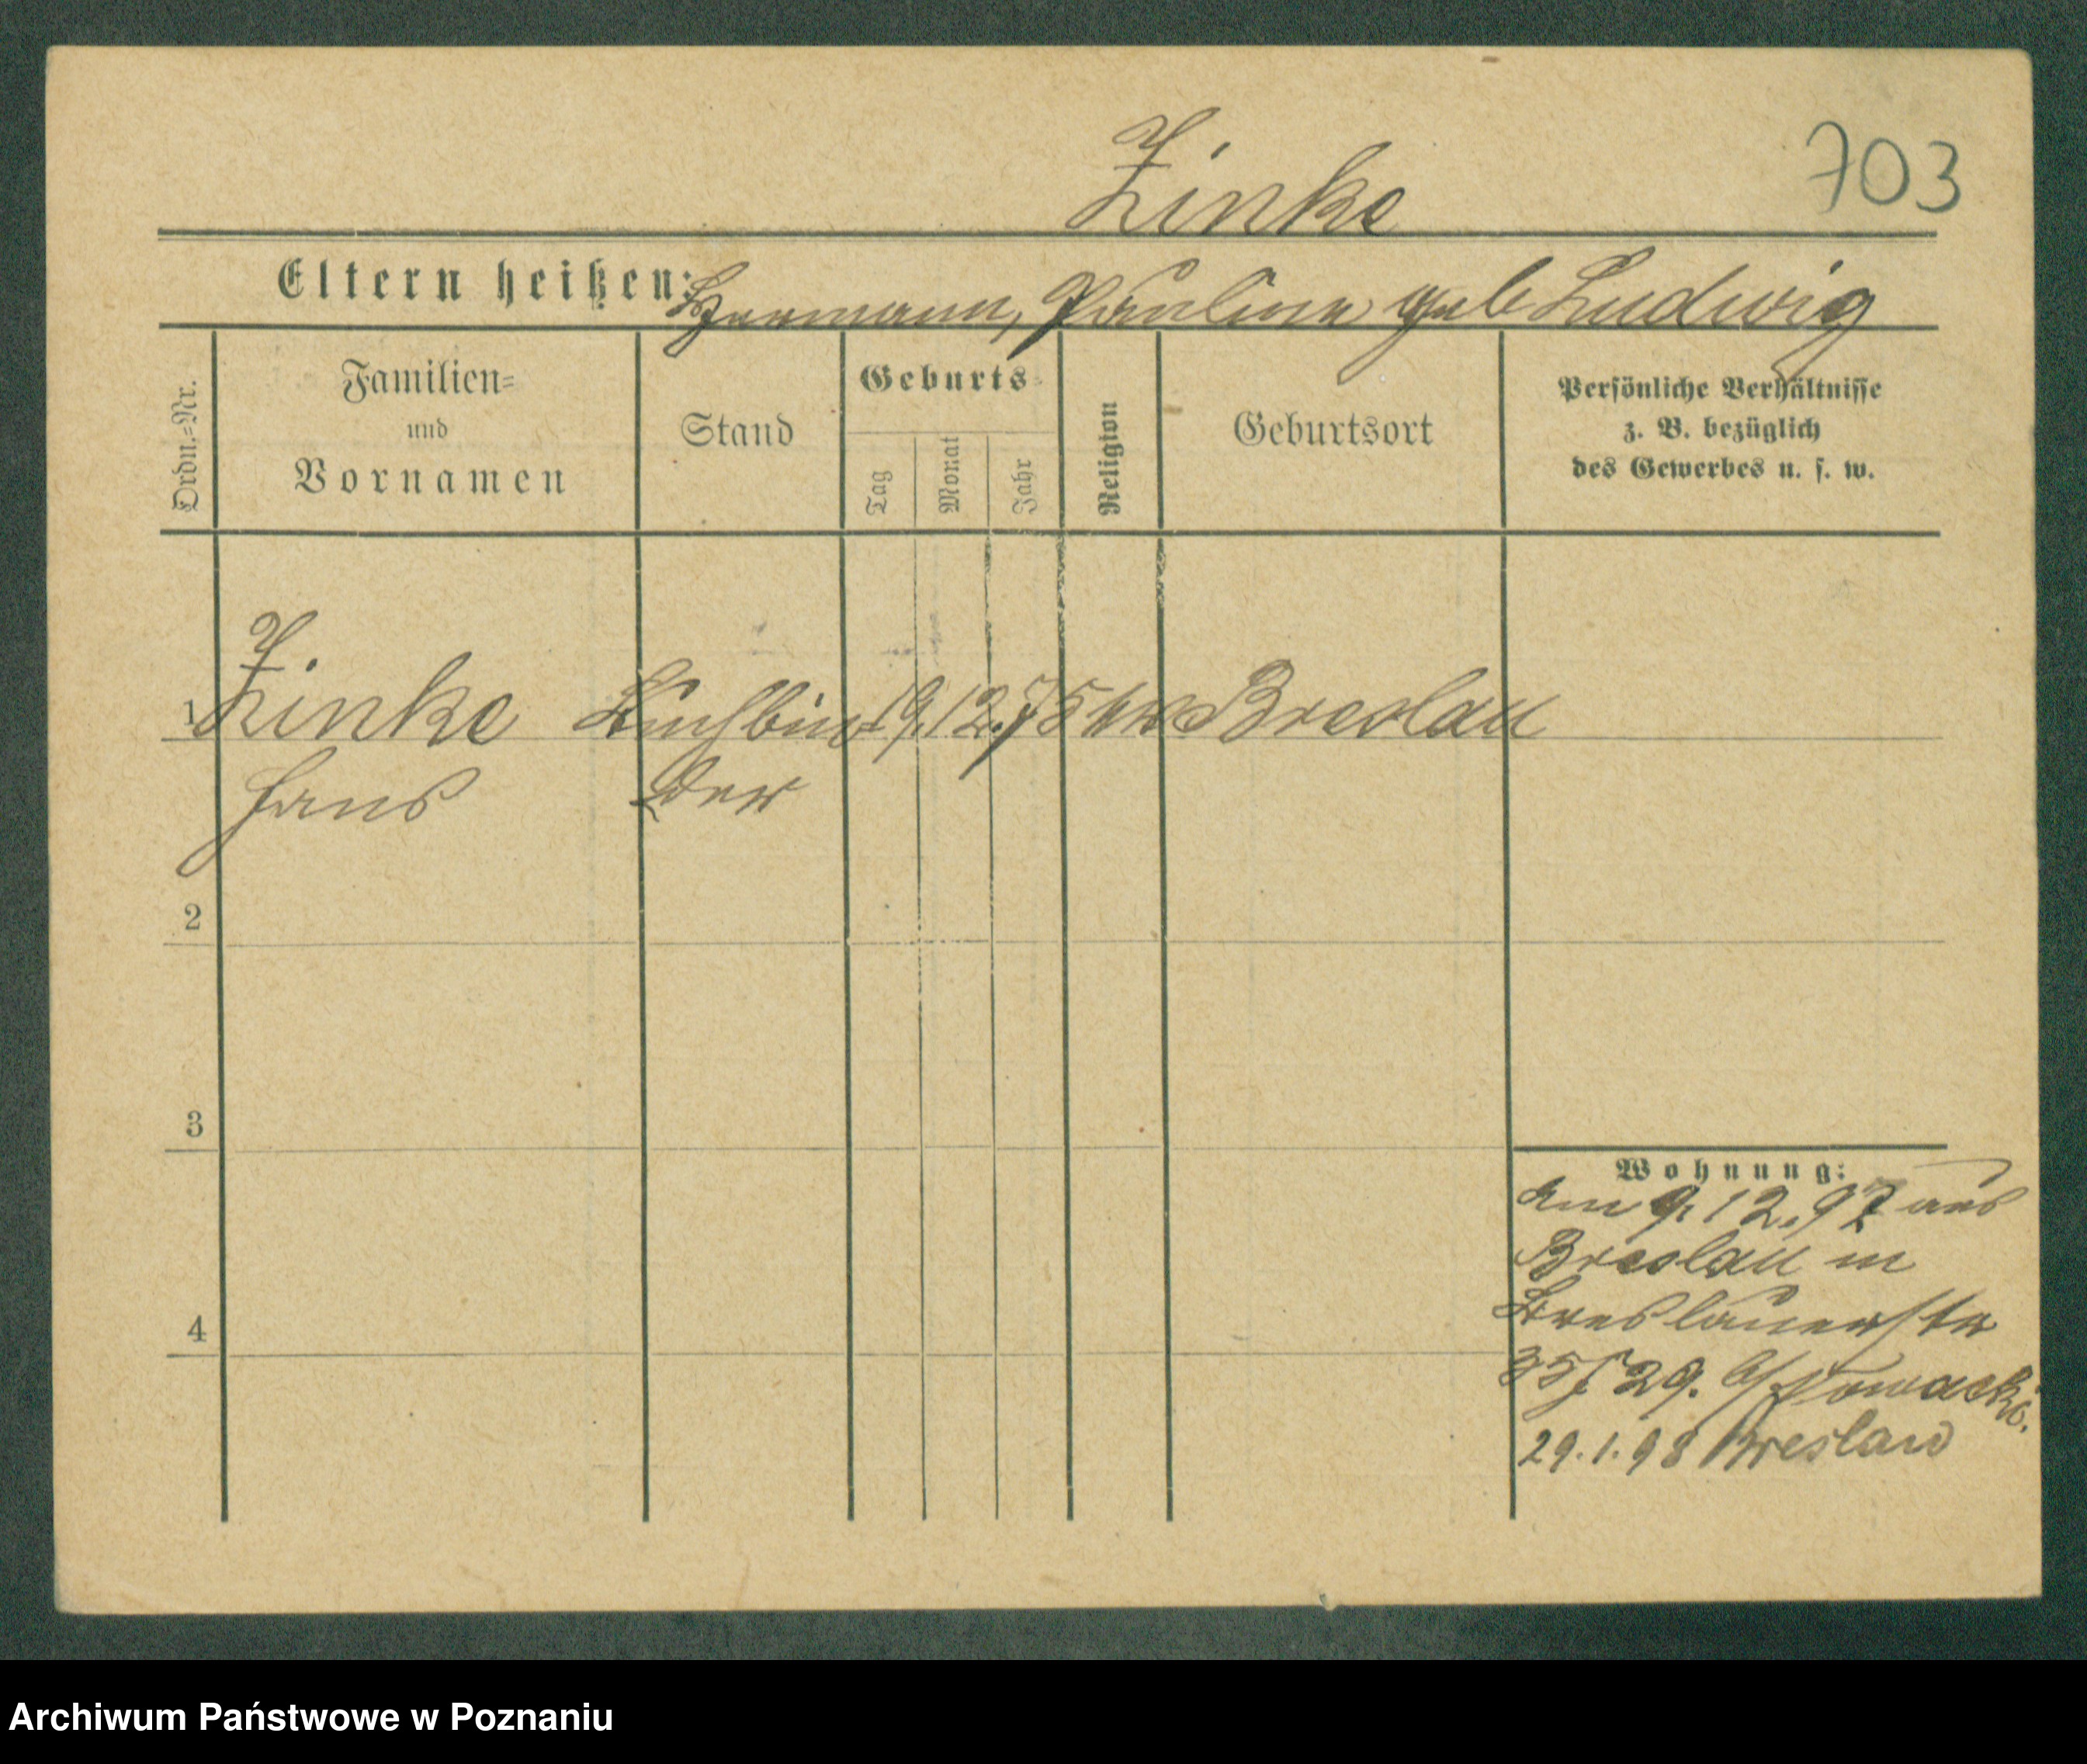 703
Zinke
Eltern heißen: Hermann, Pauline geb Ludwig
Ordn.=Nr.
Familien=
und
Vornamen
Stand
Geburts=
Tag
Monat
Jahr
Religion
Geburtsort
Persönliche Verhältnisse
z. B. bezüglich
des Gewerbes u. s. w.
1 Zinke Buchbin= 19. 12. 75 Breslau
Hans der
2
3
4
Wohnung:
am 9. 12. 97 aus
Breslau in
Breslauerstr
35 29.
29. 1. 98 Breslau
Archiwum Państwowe w Poznaniu